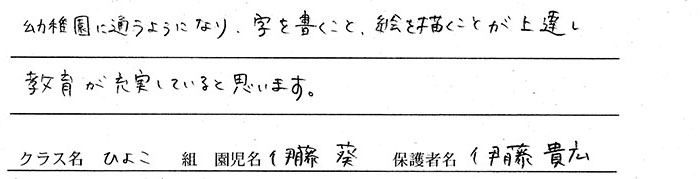 幼稚園に通うようになり、字を書くこと、絵を描くことが上達し
教育が充実していると思います。
クラス名 ひよこ 組 園児名 伊藤 葵 保護者名 伊藤 貴広